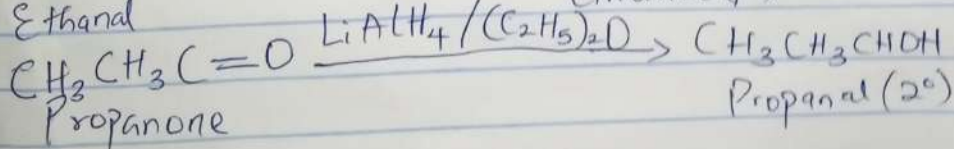 Ethanal
CH3CH3C=O LiAlH4/(C2H5)2O → CH3CH3CHOH
Propanone Propanal (2°)